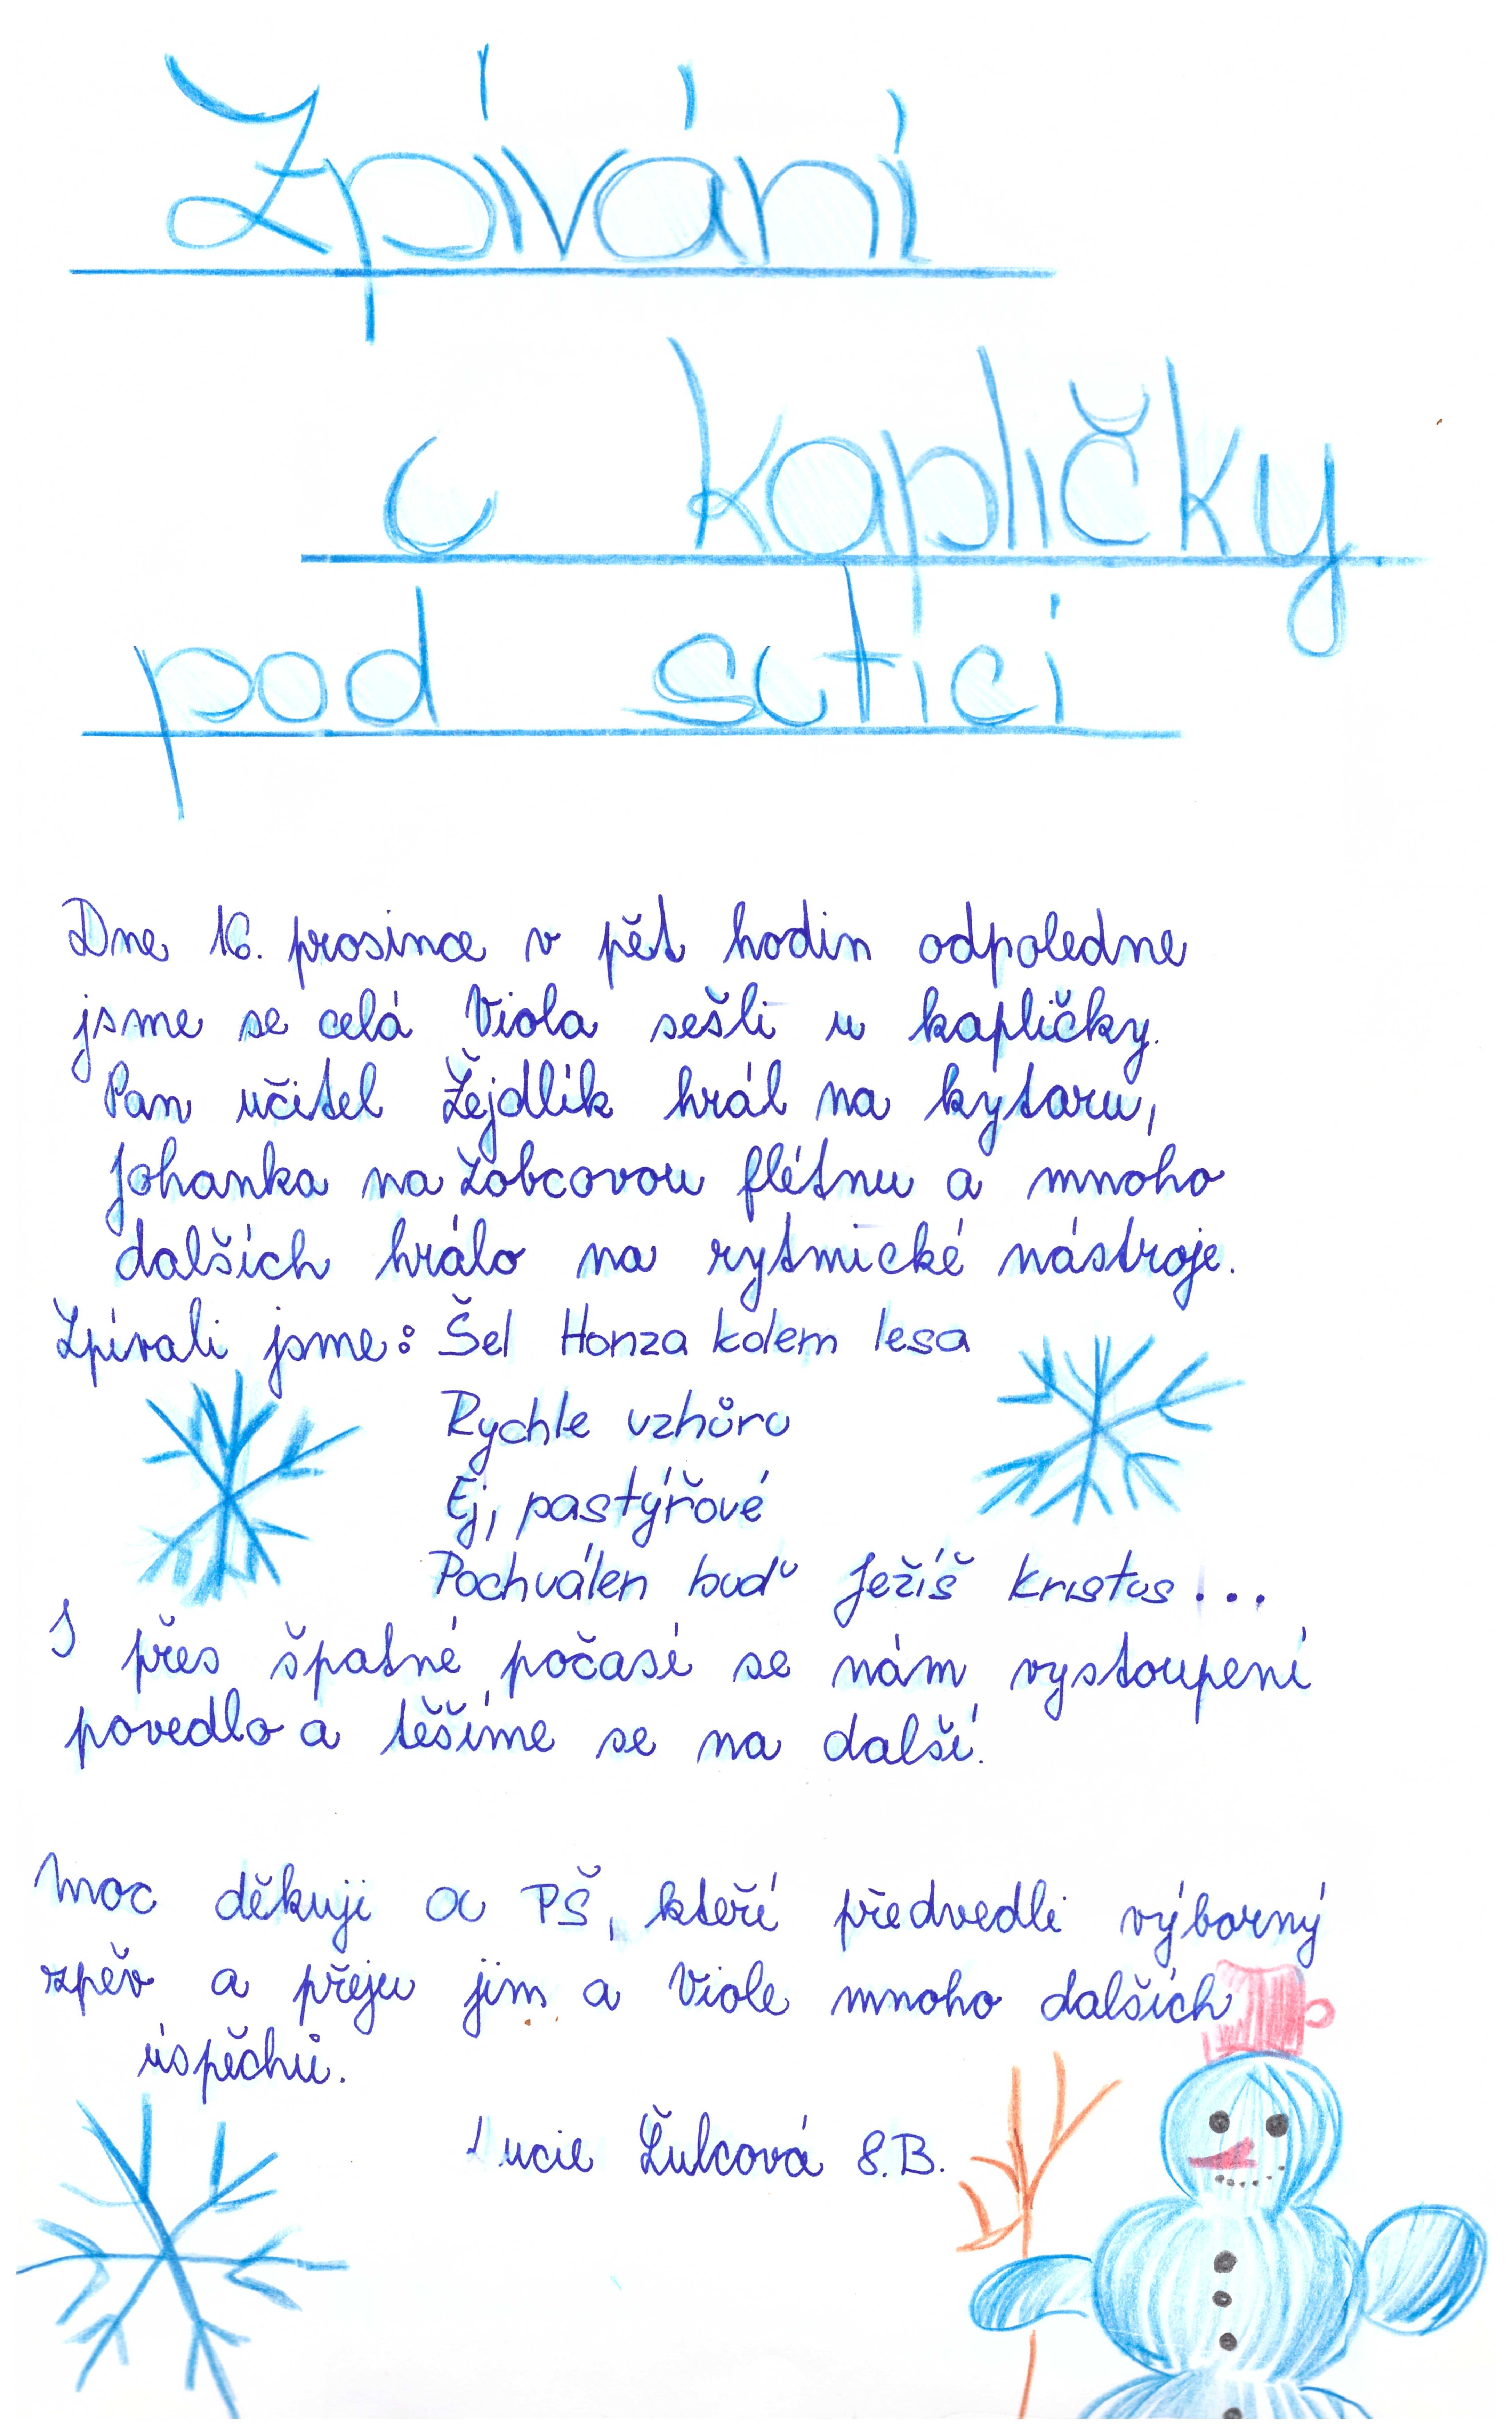 Zpívání
u kapličky
pod suticí
Dne 16. prosince v pět hodin odpoledne
jsme se celá Viola sešli u kapličky.
Pan učitel Žejdlík hrál na kytaru,
Johanka na zobcovou flétnu a mnoho
dalších hrálo na rytmické nástroje.
Zpívali jsme: Šel Honza kolem lesa
Rychle vzhůru
Ej, pastýřové
Pochválen buď Ježíš Kristus...
I přes špatné počasí se nám vystoupení
povedlo a těšíme se na další.
Moc děkuji PŠ, kteří předvedli výborný
zpěv a přeju jim a Viole mnoho dalších
úspěchů.
Lucie Žulcová 8.B.